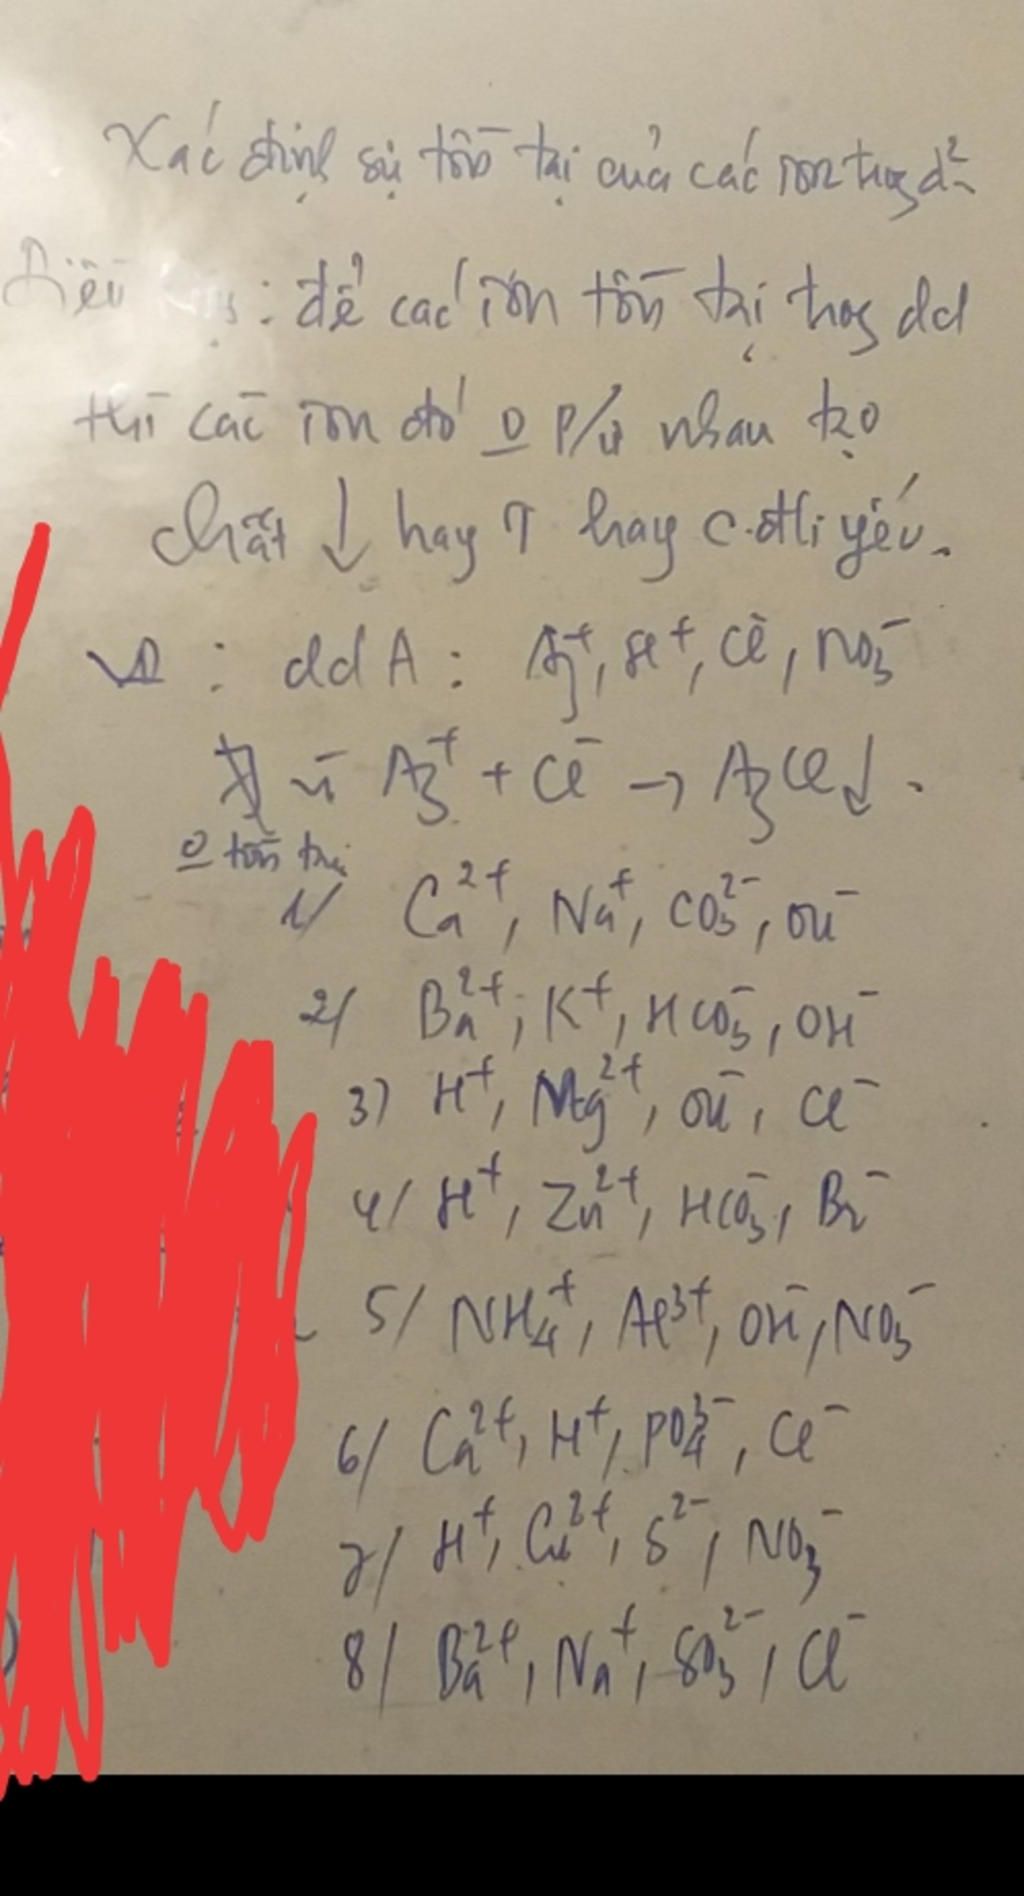 Xác định sự tồn tại của các ion trog d²
Điều : để các ion tồn tại trog dd
thì các ion đó o p/ứ nhau tạo
chất ↓ hay ↑ hay c.đli yếu.
VD : ddA : Ag⁺, H⁺, Cl⁻, NO₃⁻
vì Ag⁺ + Cl⁻ → AgCl↓.
o tồn tại
1/ Ca²⁺, Na⁺, CO₃²⁻, OH⁻
2/ Ba²⁺, K⁺, HCO₃⁻, OH⁻
3) H⁺, Mg²⁺, OH⁻, Cl⁻
4/ H⁺, Zn²⁺, HCO₃⁻, Br⁻
5/ NH₄⁺, Al³⁺, OH⁻, NO₃⁻
6/ Ca²⁺, H⁺, PO₄³⁻, Cl⁻
7/ H⁺, Cu²⁺, S²⁻, NO₃⁻
8/ Ba²⁺, Na⁺, SO₃²⁻, Cl⁻